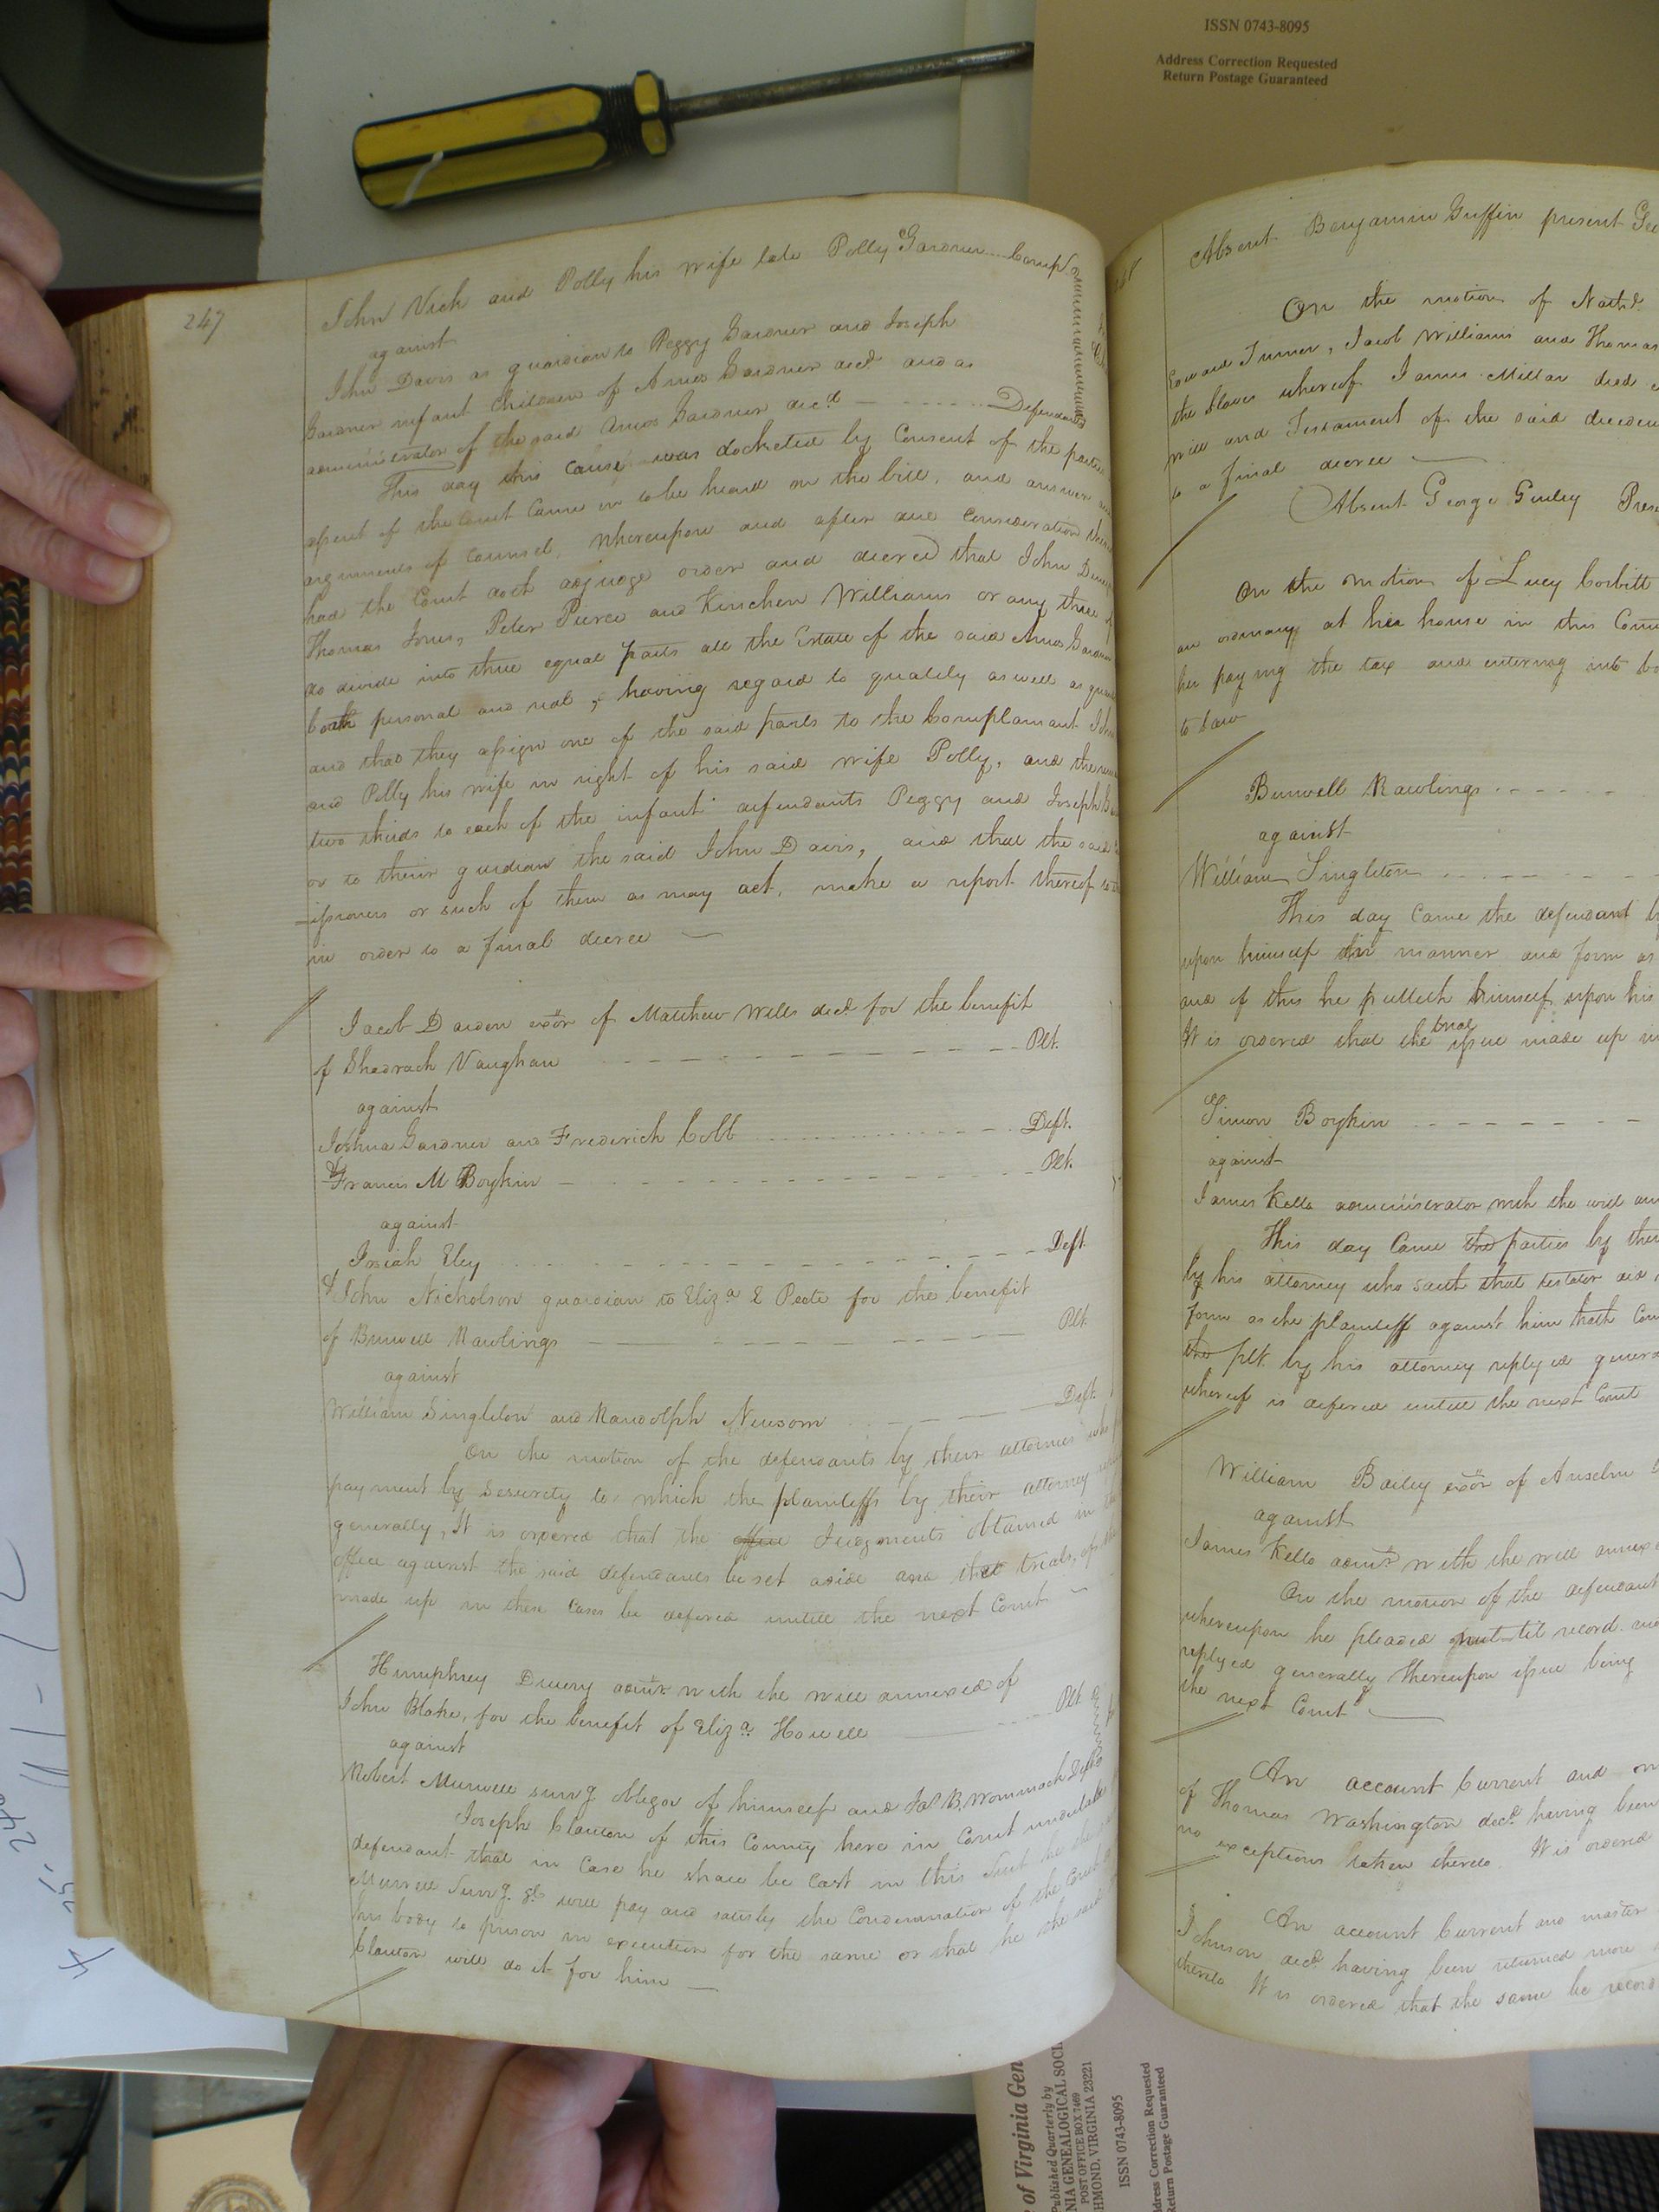 ISSN 0743-8095
Address Correction Requested
Return Postage Guaranteed
247
John Vick and Polly his wife late Polly Gardner Compl
against
John Davis as guardian to Peggy Gardner and Joseph
Gardner infant Children of Amos Gardner decd and as
administrator of the said Amos Gardner decd Defendants
This day this cause was docketed by Consent of the parties
assent of the Court Came on to be heard on the bill, and answer
arguments of Counsel, Whereupon and after due Consideration
had the Court doth adjudge order and decree that John
Thomas Jones, Peter Pierce and Kinchen Williams or any three
do divide into three equal parts all the Estate of the said Amos
both personal and real, having regard to quality as well as
and that they assign one of the said parts to the Complamant
and Polly his wife in right of his said wife Polly, and the
two thirds to each of the infant defendants Peggy and Joseph
or to their guardian the said John Davis, and that the said
-issioners or such of them as may act, make a report thereof
in order to a final decree
Jacob Darden exor of Matthew Wills decd for the benefit
of Shadrach Vaughan Plt.
against
Joshua Gardner and Frederick Cobb Deft.
& Francis M Boykin Plt.
against
Josiah Eley Deft
& John Nicholson guardian to Eliza E Peete for the benefit
of Burwell Rawlings Plt.
against
William Singleton and Randolph Newsom Deft.
On the motion of the defendants by their attornies who
payment by Sesurety to which the plaintiffs by their attorney
generally, It is ordered that the office Judgments obtained in
office against the said defendants be set aside and the trials,
made up in these Cases be defered untill the next Court
Humphrey Drewry admr with the will annexed of
John Blake, for the benefit of Eliza Howell Plt
against
Robert Murrell survg obligor of himself and Jas B. Wommack Deft
Joseph Clauton of this County here in Court undertakes
defendant that in Case he shall be Cast in this Suit he the
Murrell Survg &c will pay and satisfy the Condemnation of the Court
his body to prison in execution for the same or that he the said
Clauton will do it for him
Absent Benjamin Griffin present
On the motion of Nathl
Edward Turner, Jacob Williams and Thomas
the slaves whereof James Millar died
will and Testament of the said
to a final decree
Absent George Gurley
On the motion of Lucy Corbitt
an ordinary at her house in this
her paying the tax and entering into
to law
Burwell Rawlings
against
William Singleton
This day Came the defendant
upon himself in manner and form as
and of this he putteth himself upon his
It is ordered that the trial issue made up
Simon Boykin
against
James Kello administrator with the will
This day Came the parties by
by his attorney who saith that testator did
form as the plaintiff against him hath
the plt. by his attorney replyed
whereof is defered untill the next Court
William Bailey exor of Anselm
against
James Kello admr with the will
On the motion of the defendant
whereupon he pleaded nul til record
replyed generally thereupon issue being
the next Court
An account Current and
of Thomas Washington decd having been
no exceptions taken thereto. It is ordered
An account Current and master
Johnson decd having been returned more
thereto It is ordered that the same be
of Virginia Gen
Published Quarterly by
NIA GENEALOGICAL SOCI
POST OFFICE BOX 7469
HMOND, VIRGINIA 23221
ISSN 0743-8095
ddress Correction Requested
Return Postage Guaranteed